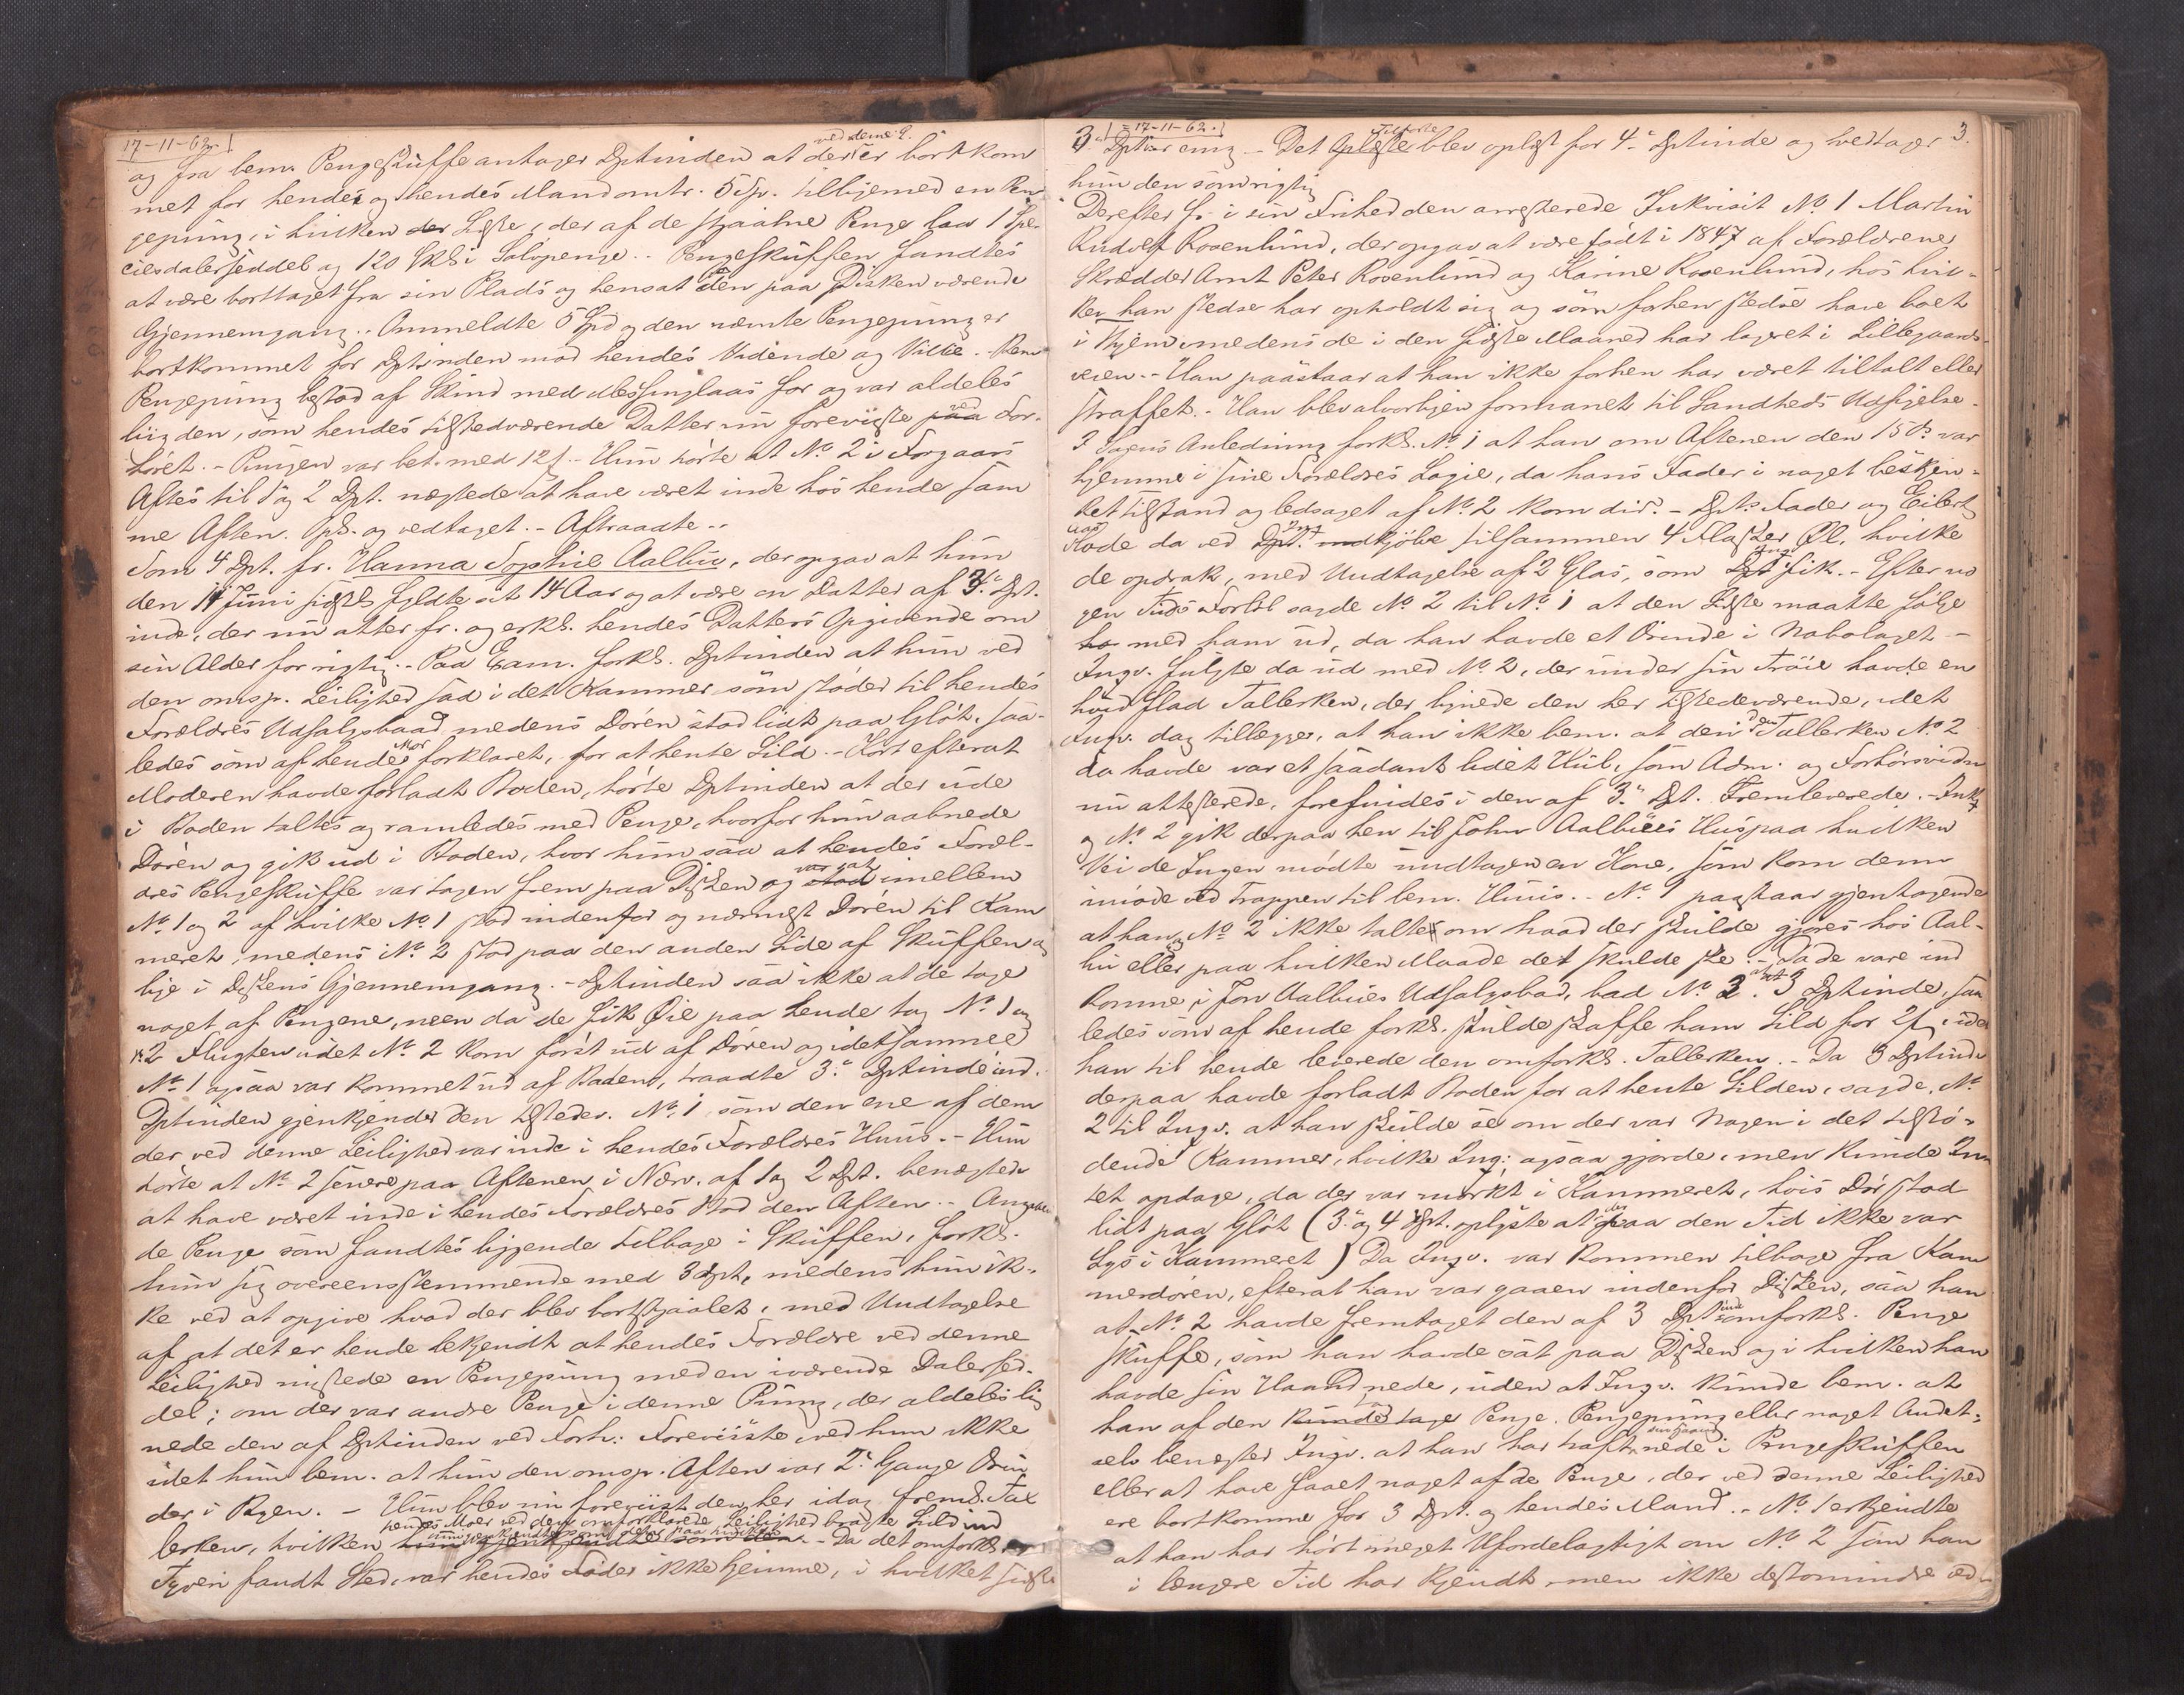 17-11-62.
og fra bem. Pengeskuffe antager Dptinden at der er bortkom
ved denne L.
met for hende og hendes Mand omtr. 5 Sp. tilligemed en Pen
gepung, i hvilken der Sidste, der af de stjaalne Penge laa 1 Spe-
ciesdalerseddel og 120 sk i Sølvpenge. - Pengeskuffen fandtes
at være borttaget fra sin Plads og hensat i den paa Disken værende
Gjennemgang. - Anmeldte 5 Spd og den nævnte Pengepung er
bortkommet for Dptinden mod hendes Vidende og Villie. - Bem
Pengepung bestod af Skind med Messinglaas for og var aldeles
liig den, som hendes tilstedværende Datter nu foreviste paa ved For-
höret. - Pungen var bet. med 12 s. - Hun hørte at No 2 i Forgaars
Aftes til 1 og 2 Dpt. nægtede at have været inde hos hende sam
me Aften. Opl. og vedtaget. - Aftraadte. -
Som 4 Dpt. fr. Hanna Sophie Aalbu, der opgav at hun
den 14 Juni sidstl. fyldte sit 14 Aar og at være en Datter af 3die Dpt.
inde, der nu atter fr. og erkl. hendes Datters Opgivende om
sin Alder for rigtig. - Paa Exam. forkl. Dptinden at hun ved
den omsp. Leilighed sad i det Kammer som støder til hendes
Forældres Udsalgsbod, medens Døren stod lidt paa Gløt, saa-
ledes som af hendes Mor forklaret, for at hente Sild. - Kort efterat
Moderen havde forladt Boden, hørte Dptinden at der ude
i Boden taltes og ramledes med Penge, hvorfor hun aabnede
Døren og gik ud i Boden, hvor hun saa at hendes Foræl-
dres Pengeskuffe var tagen frem paa Disken og stod var sat imellem
No 1 og 2 af hvilke No 1 stod indenfor og nærmest Døren til Kam
meret, medens No 2 stod paa den anden Side af Skuffen og
lige i Diskens Gjennemgang. - Dptinden saa ikke at de toge
noget af Pengene, men da de fik Øie paa hende tog No 1 og
2 Flugten idet No 2 kom først ud af Døren og idetsamme
No 1 ogsaa var kommet ud af Boden, traadte 3die Dptinde ind.
Dptinden gjenkjender den tilstedev. No 1 som den ene af dem
der ved denne Leilighed var inde i hendes Forældres Huus. - Hun
hørte at No 2 senere paa Aftenen i Nærv. af 1 og 2 Dpt. benægtede
at have været inde i hendes Forældres Bod den Aften. - Angaaen
de Penge som fandtes liggende tilbage i Skuffen, forkl.
hun sig overeensstemmende med 3 Dpt, medens hun ik-
ke ved at opgive hvad der blev bortstjaalet, med Undtagelse
af at det er hende bekjendt at hendes Forældre ved denne
Leilighed mistede en Pengepung med en iværende Dalersed-
del; om der var andre Penge i denne Pung, der aldeles lig
nede den af Dptinden ved Forh. Foreviiste ved hun ikke
idet hun bem. at hun den omsp. Aften var 2de Gange Ørin
der i Byen. - Hun blev nu foreviist den her idag fremd. Tal
hendes Moer ved den omforklarede Leilighed bragte Sild ind
lerken, hvilken hun gjenkjendte som den. - Da det omforkl.
Tyveri fandt Sted, var hendes Fader ikke hjemme, i hvilket sidste
17-11-62.
3.
3 Dpt var enig - Det Oplæste Tilførte blev oplæst for 4de Dptinde og vedtager
hun den som rigtig
Derefter fr. i sin Frihed den arresterede Inkvisit No 1 Martin
Rudolf Rosenlund, der opgav at være født i 1847 af Forældrene
Skrædder Arnt Peter Rosenlund og Karine Rosenlund, hos hvil-
ke han stedse har opholdt sig og som forhen stedse have boet
i Byen imedens de i den sidste Maaned har logeret i Lillegaards-
veien. - Han paastaar at han ikke forhen har været tiltalt eller
straffet. - Han blev alvorligen formanet til Sandheds Udsigelse.
I Sagens Anledning forkl. No 1 at han om Aftenen den 15de var
hjemme i sine Forældres Logie, da hans Fader i noget beskjen-
ket Tilstand og ledsaget af No 2 kom did. - Dpts Fader og Eilert
lod da ved Dpt. Inqv indkjøbe tilsammen 4 Flasker Øl, hvilke
de opdrak, med Undtagelse af 2 Glas, som Dpt Inqv fik. - Efter no
gen Tids Forløb sagde No 2 til No 1 at den Sidste maatte følge
ho med ham ud, da han havde et Ørinde i Nabolaget -
Inqv. fulgte da ud med No 2, der under sin Trøie havde en
hvid flad Tallerken, der lignede den her tilstedeværende, idet
Inqv. dog tillegger, at han ikke bem. at den i den Tallerken No 2
da havde var et saadant lidet Hul, som Adm. og Forhörsvidn
nu attesterede, forefindes i den af 3die Dpt. Fremleverede. - Inkv
og No 2 gik derpaa hen til John Aalbues Hus paa hvilken
Vei de Ingen mødte undtagen en Kone, som kom dem
imøde ved Trappen til bem. Huus. - No 1 paastaar gjentagende
at han og No 2 ikke taltes om hvad der skulde gjøres hos Aal-
bu eller paa hvilken Maade det skulde ske. - Da de vare ind
komne i John Aalbues Udsalgsbod, bad No 2 at 3 Dptinde, saa
ledes som af hende forkl. skulde skaffe ham Sild for 2 s, idet
han til hende leverede den omforkl. Tallerken. - Da 3 Dptinde
derpaa havde forladt Boden for at hente Silden, sagde No
2 til Inqv. at han skulde se om der var Nogen i det tilstø-
dende Kammer, hvilke Inq: ogsaa gjorde, men kunde In
tet opdage, da der var mørkt i Kammeret, hvis Dør stod
lidt paa Gløt (3die og 4 Dpt. oplyste at der paa den Tid ikke var
Lys i Kammeret) Da Inqv. var kommen tilbage fra Kam
merdøren, efterat han var gaaen indenfor Disken, saa han
at No 2 havde fremtaget den af 3 Dptind omforkl. Penge
skuffe, som han havde sat paa Disken og i hvilken han
havde sin Haand nede, uden at Inqv. kunde bem. at
han af den kunde tage Penge, Pengepung eller noget Andet,
selv benægter Inqv. at han har haft sin Haand nede i Pengeskuffen
eller at have faaet noget af de Penge, der ved denne Leilighed
ere bortkomne for 3 Dpt. og hendes Mand. - No 1 erkjendte
at han har hørt meget Ufordelagtigt om No 2 som han
i længere Tid har kjendt, men ikke destomindre ved